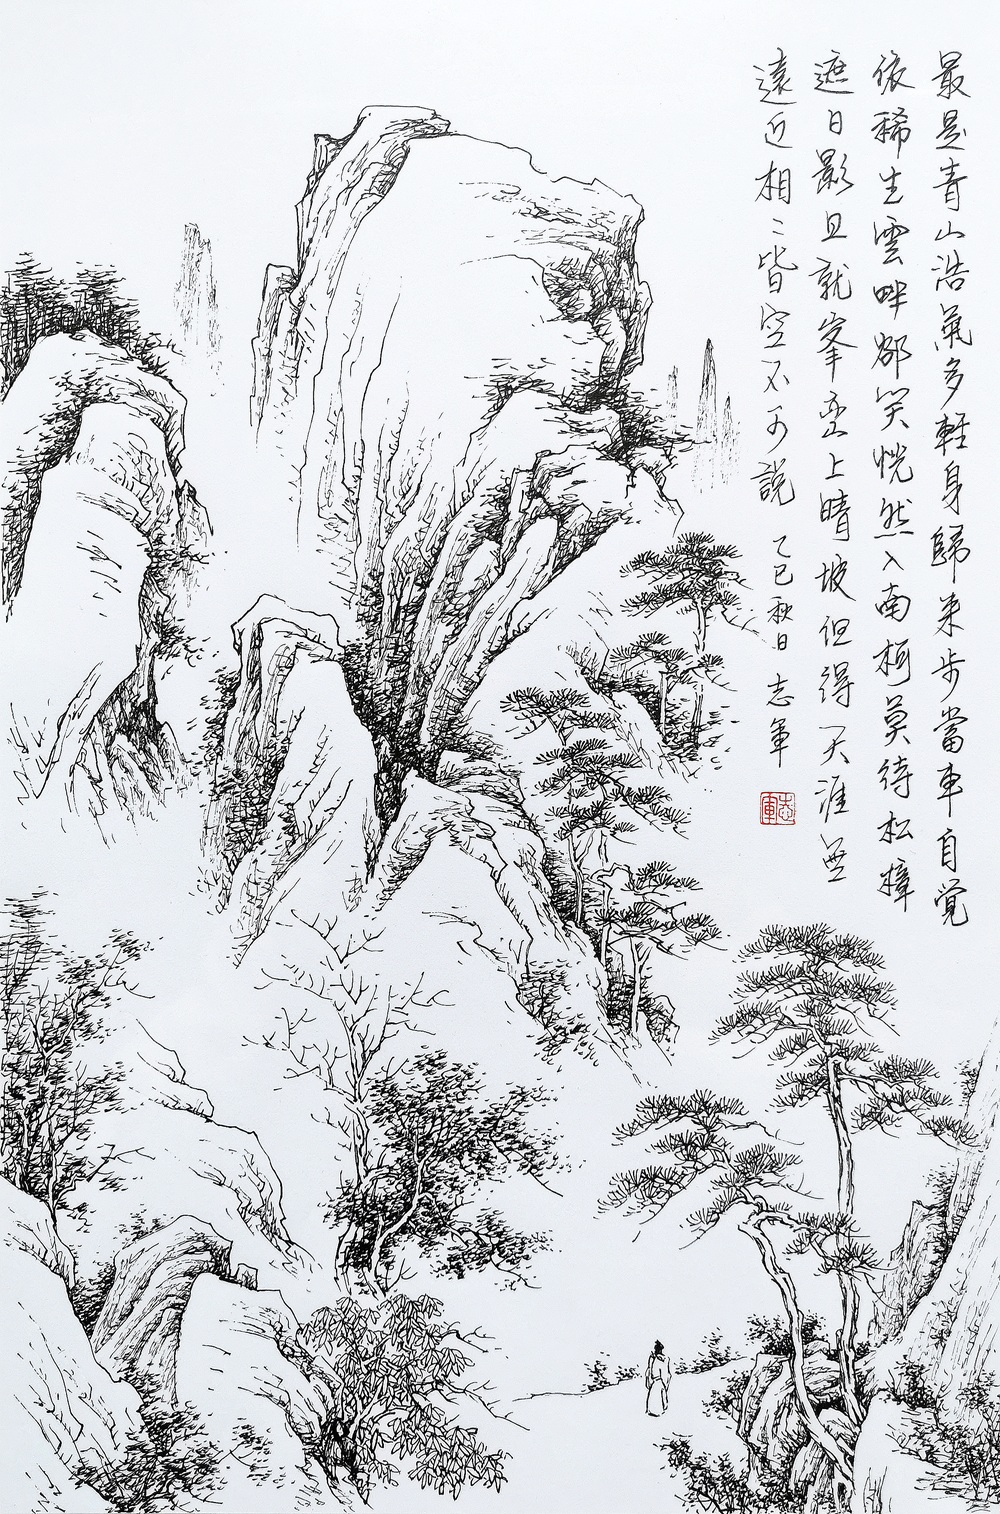 最是青山浩氣多輕身歸来步當車自覺
依稀生雲畔卻笑恍然入南柯莫待松樟
遮日影且就峯巫上晴坡但得天涯無
遠近相〻皆空不可説
乙巳秋日 志军
志軍